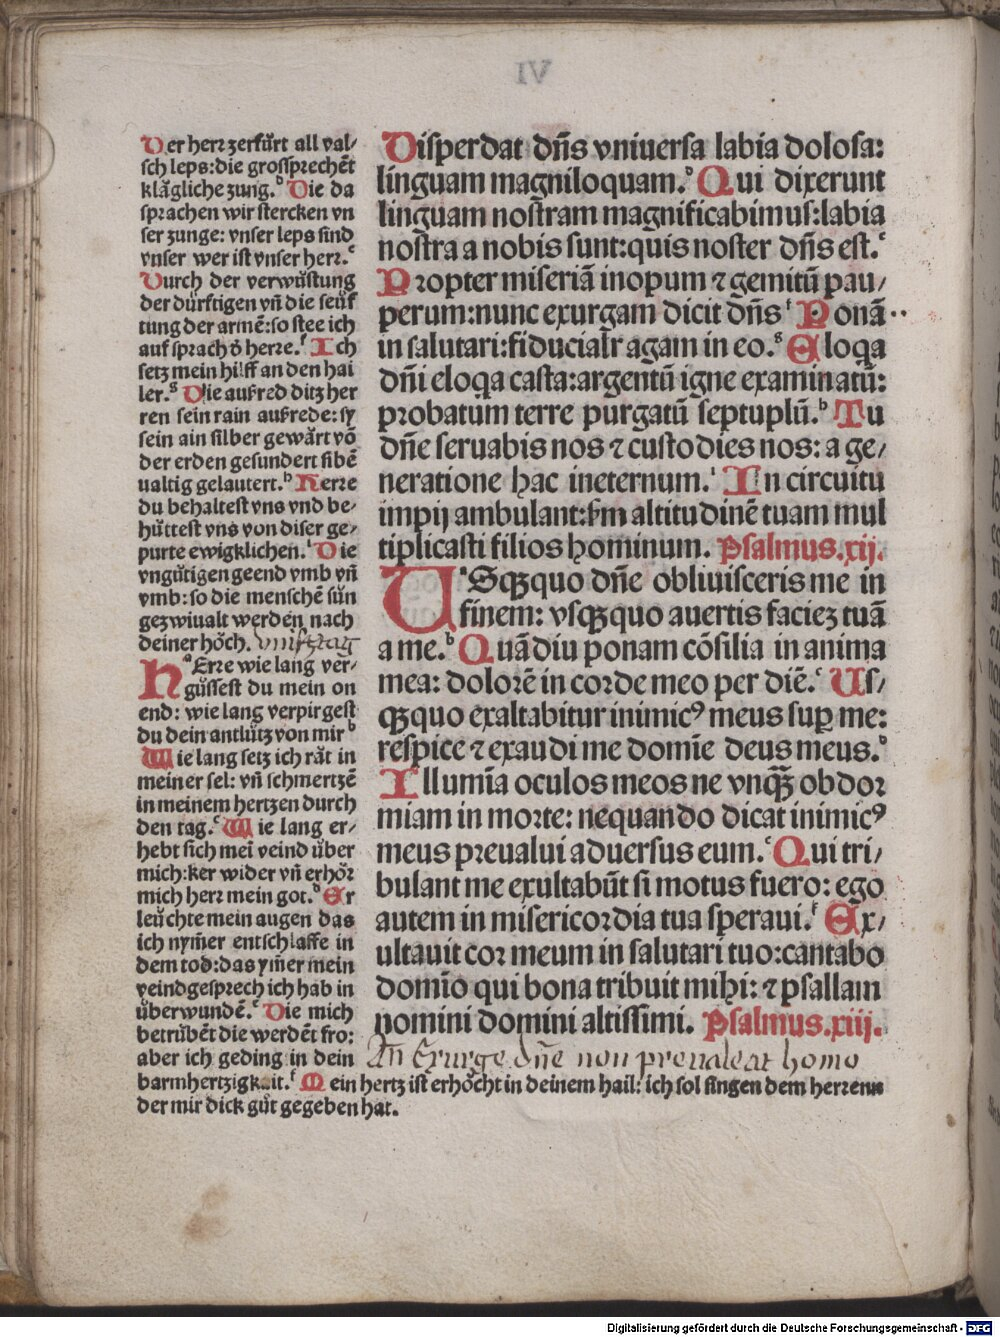 VI
Der herr zerfu̎rt all val/
sch leps: die grossprechēt
klägliche zung.ᵇ Die da
sprachen wir stercken vn
ser zunge: vnser leps sind
vnser wer ist vnser herr.ᶜ
Durch der verwüstung
der dürftigen vñ die seüf
tung der armē: so stee ich
auf sprach ð herre.ᶠ Ich
setz mein hilff an den hai
ler.ᵍ Die außred ditz her
ren sein rain außrede: sy
sein ain silber gewärt vō
der erden gesundert sibē
ualtig gelautert.ʰ Herre
du behaltest vns vnd be/
hüttest vns von diser ge/
purte ewigklichen.ⁱ Die
vngütigen geend vmb vñ
vmb: so die menschē sün
gezwiualt werden nach
deiner höch.
HᵃErre wie lang ver/
güssest du mein on
end: wie lang verpirgest
du dein antlütz von mir ᵇ
Wie lang setz ich rät in
meiner sel: vñ schmertzē
in meinem hertzen durch
den tag.ᶜ Wie lang er/
hebt sich mei veind über
mich: ker wider vñ erhör
mich herr mein got.ᵈ Er
leüchte mein augen das
ich nym̄er entschlaffe in
dem tod: das ym̄er mein
veind gesprech ich hab in
überwundē.ᵉ Die mich
betrübēt die werdēt fro:
aber ich geding in dein
barmhertzigkait.ᶠ Mein hertz ist erhöcht in deinem hail: ich sol singen dem herrenn
der mir dick güt gegeben hat.
Disperdat dn̄s vniuersa labia dolosa:
linguam magniloquam.ᵇ Qui dixerunt
linguam nostram magnificabimus: labia
nostra a nobis sunt: quis noster dn̄s est.ᶜ
Propter miseriā inopum ⁊ gemitū pau/
perum: nunc exurgam dicit dn̄s ᶠ Ponā
in salutari: fiducialr agam in eo.ᵍ Eloqa
dn̄i eloqa casta: argentū igne examinatū:
probatum terre purgatū septuplū.ʰ Tu
dn̄e seruabis nos ⁊ custodies nos: a ge/
neratione hac ineternum.ⁱ In circuitu
impij ambulant: scd̄m altitudinē tuam mul
tiplicasti filios hominum. Psalmus.xij.
UᵃSqꝫquo dn̄e obliuisceris me in
finem: vsqꝫquo auertis faciez tuā
a me.ᵇ Quādiu ponam cōsilia in anima
mea: dolorē in corde meo per diē.ᶜ Us/
qꝫquo exaltabitur inimicꝰ meus suꝑ me:
respice ⁊ exaudi me domīe deus meus.ᵈ
Illumīa oculos meos ne vnqꝫ̄ obdor
miam in morte: nequando dicat inimicꝰ
meus preualui aduersus eum.ᵉ Qui tri/
bulant me exultabūt si motus fuero: ego
autem in misericordia tua speraui.ᶠ Ex/
ultauit cor meum in salutari tuo: cantabo
domīo qui bona tribuit mihi: ⁊ psallam
nomini domini altissimi. Psalmus.xiij.
An̄ Exurge dn̄e non preualeat homo
Digitalisierung gefördert durch die Deutsche Forschungsgemeinschaft - DFG